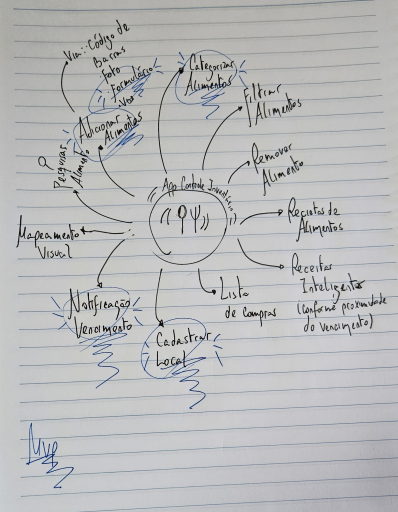 Via: Código de
Barras
Foto
Formulário
Voz
Adicionar
Alimentos
Categorizar
Alimentos
Filtrar
Alimentos
Remover
Alimento
Pesquisar
Alimento
App Controle Inventário
Receitas de
Alimentos
Mapeamento
Visual
Receitas
Inteligentes
(conforme proximidade
do vencimento)
Lista
de compras
Notificação
Vencimento
Cadastrar
Local
Mvp